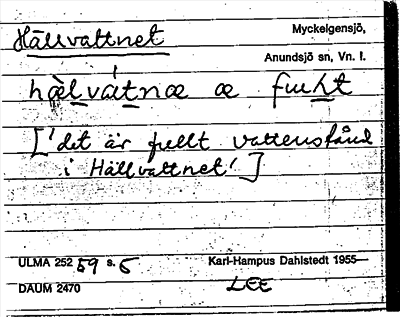 Hällvattnet
Myckelgensjö,
Anundsjö sn, Vn. l.
hæ̀lvátnæ æ fuḷḷt
['det är fullt vattenstånd
i Hällvattnet']
ULMA 252 59 s. 5
Karl-Hampus Dahlstedt 1955—
DAUM 2470
LEE